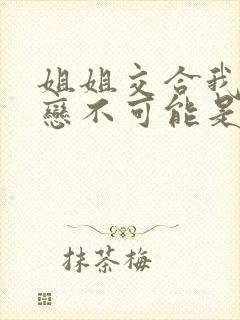 姐姐交合我
戀不可能是
抹茶梅